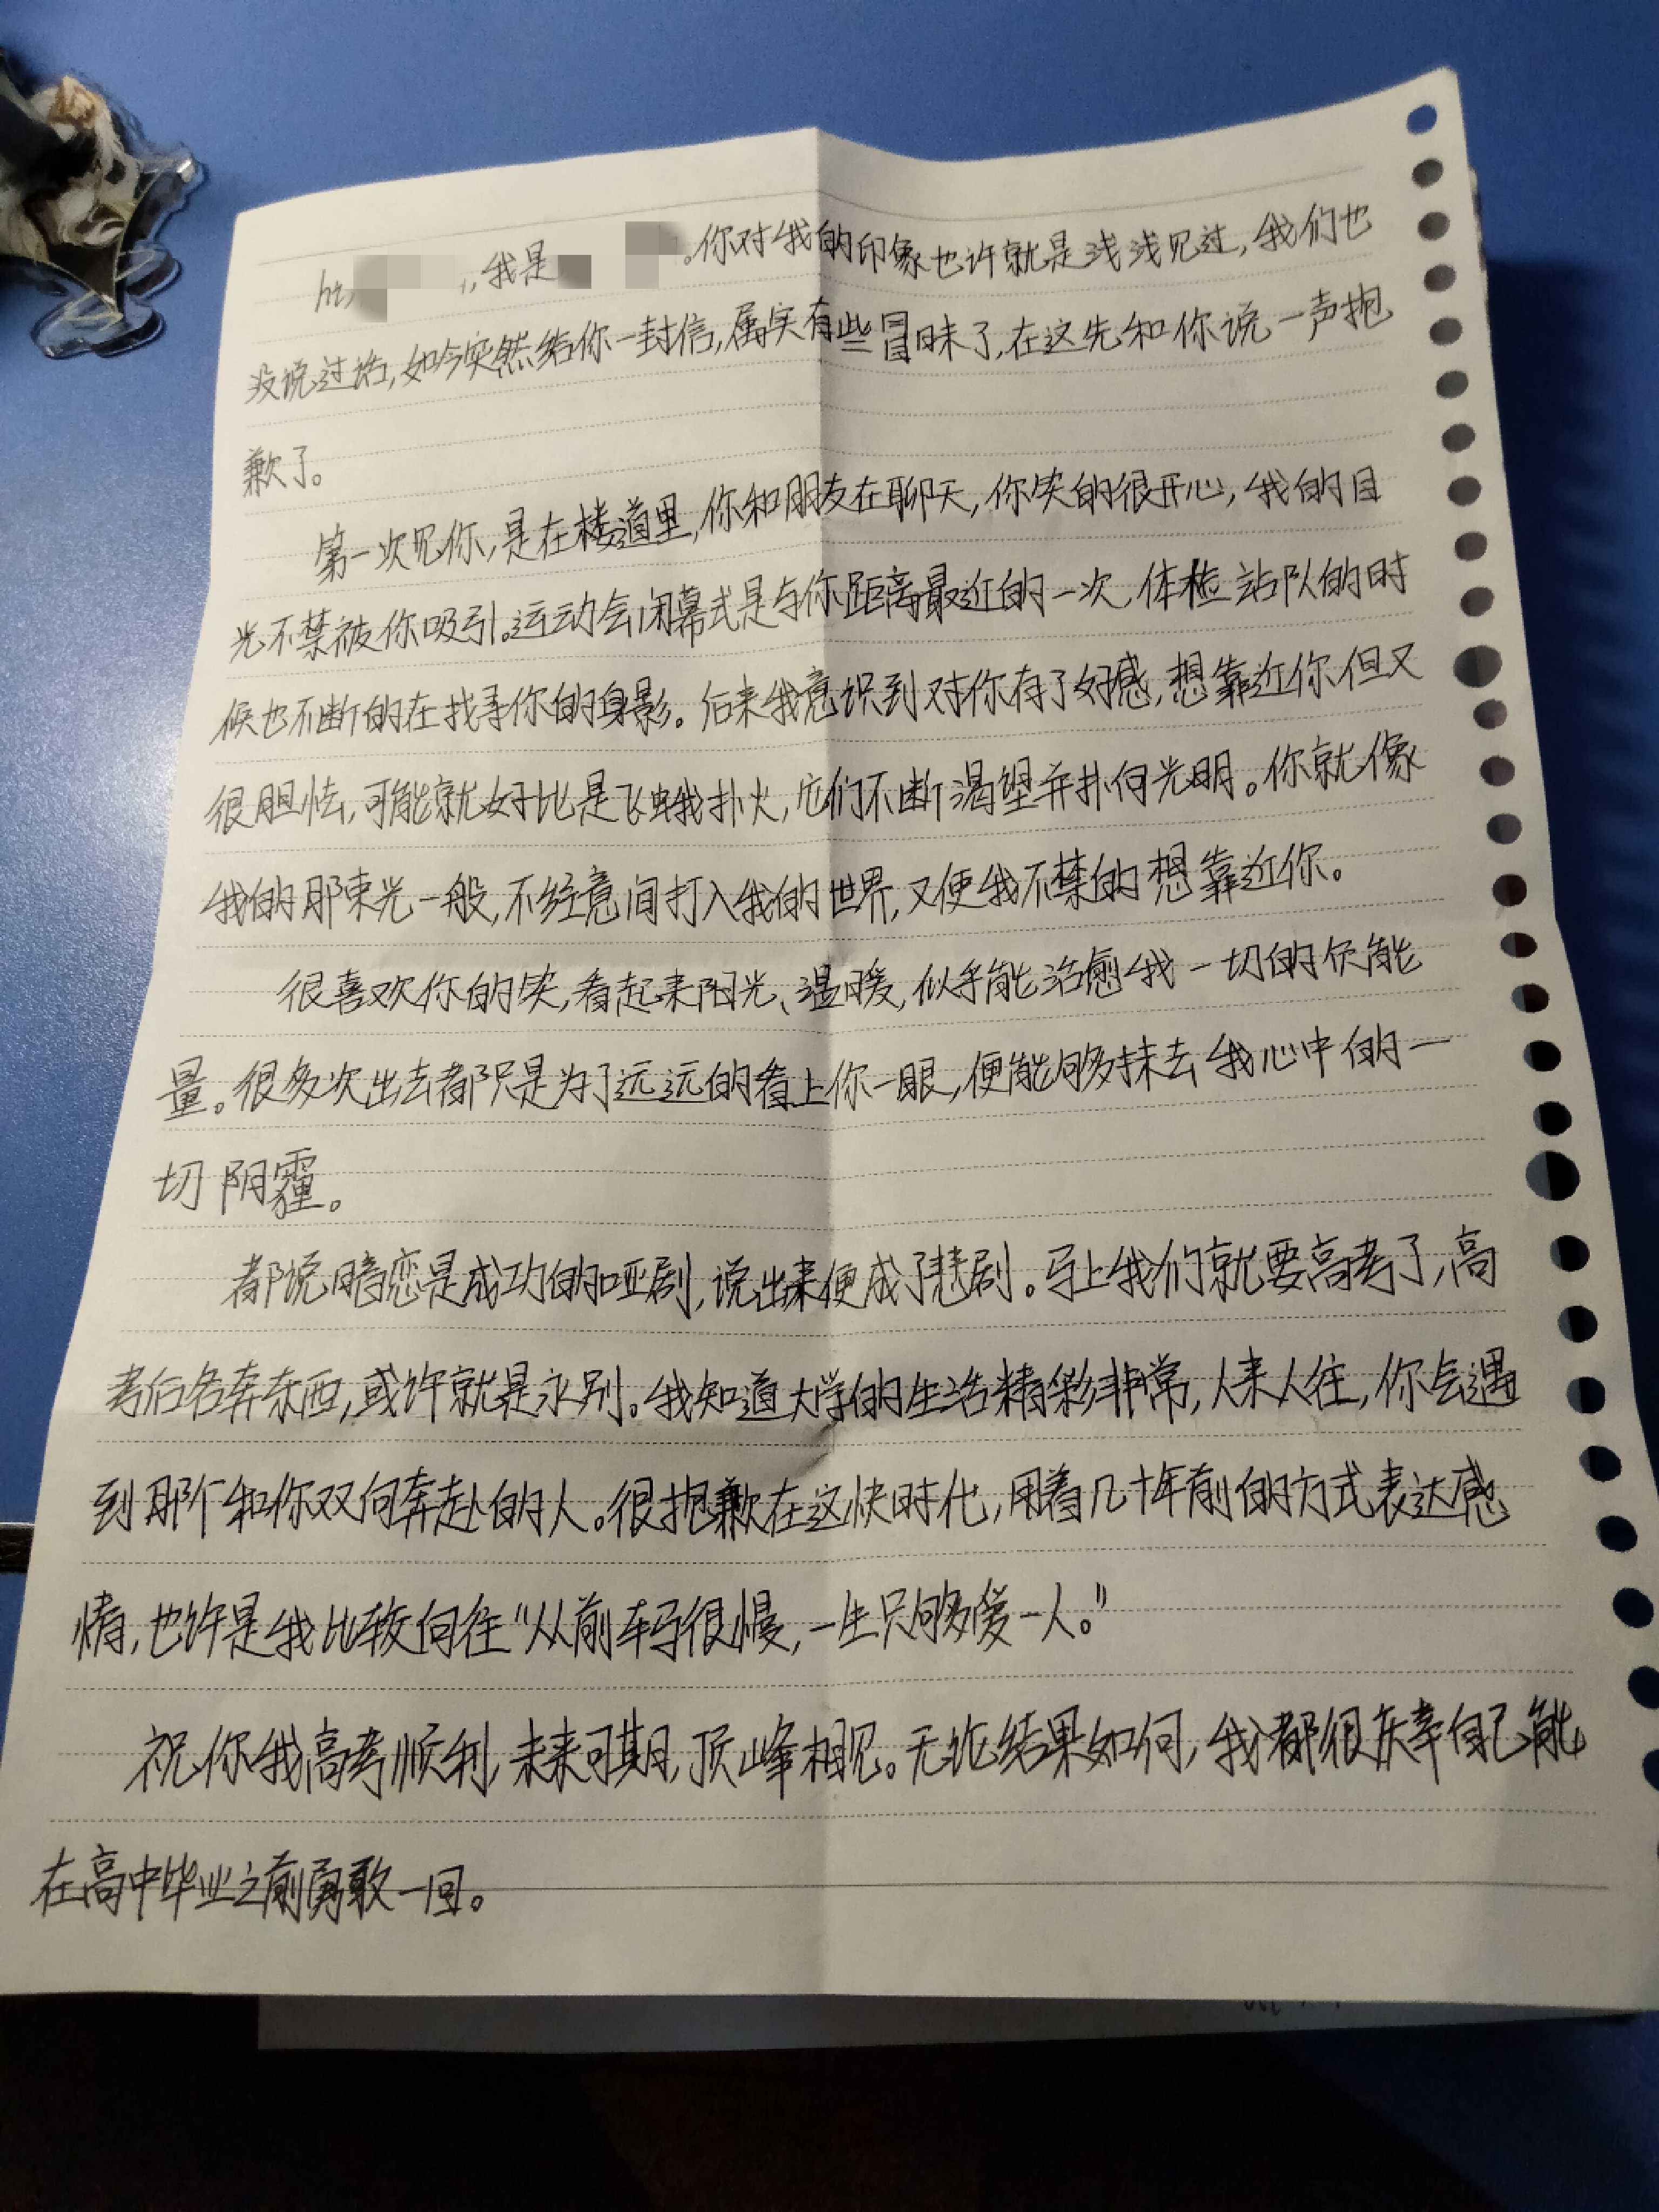 hi, ，我是 。你对我的印象也许就是浅浅见过，我们也
没说过话，如今突然给你一封信，属实有些冒昧了，在这先和你说一声抱
歉了。
第一次见你，是在楼道里，你和朋友在聊天，你笑的很开心，我的目
光不禁被你吸引。运动会闭幕式是与你距离最近的一次，体检站队的时
候也不断的在找寻你的身影。后来我意识到对你有了好感，想靠近你但又
很胆怯，可能就好比是飞蛾扑火，它们不断渴望并扑向光明。你就像
我的那束光一般，不经意间打入我的世界，又使我不禁的想靠近你。
很喜欢你的笑，看起来阳光、温暖，似乎能治愈我一切的负能
量。很多次出去都只是为了远远的看上你一眼，便能够抹去我心中的一
切阴霾。
都说暗恋是成功的哑剧，说出来便成了悲剧。马上我们就要高考了，高
考后各奔东西，或许就是永别。我知道大学的生活精彩非常，人来人往，你会遇
到那个和你双向奔赴的人。很抱歉在这快时代，用着几十年前的方式表达感
情，也许是我比较向往“从前车马很慢，一生只够爱一人。”
祝你我高考顺利，未来可期，顶峰相见。无论结果如何，我都很庆幸自己能
在高中毕业之前勇敢一回。